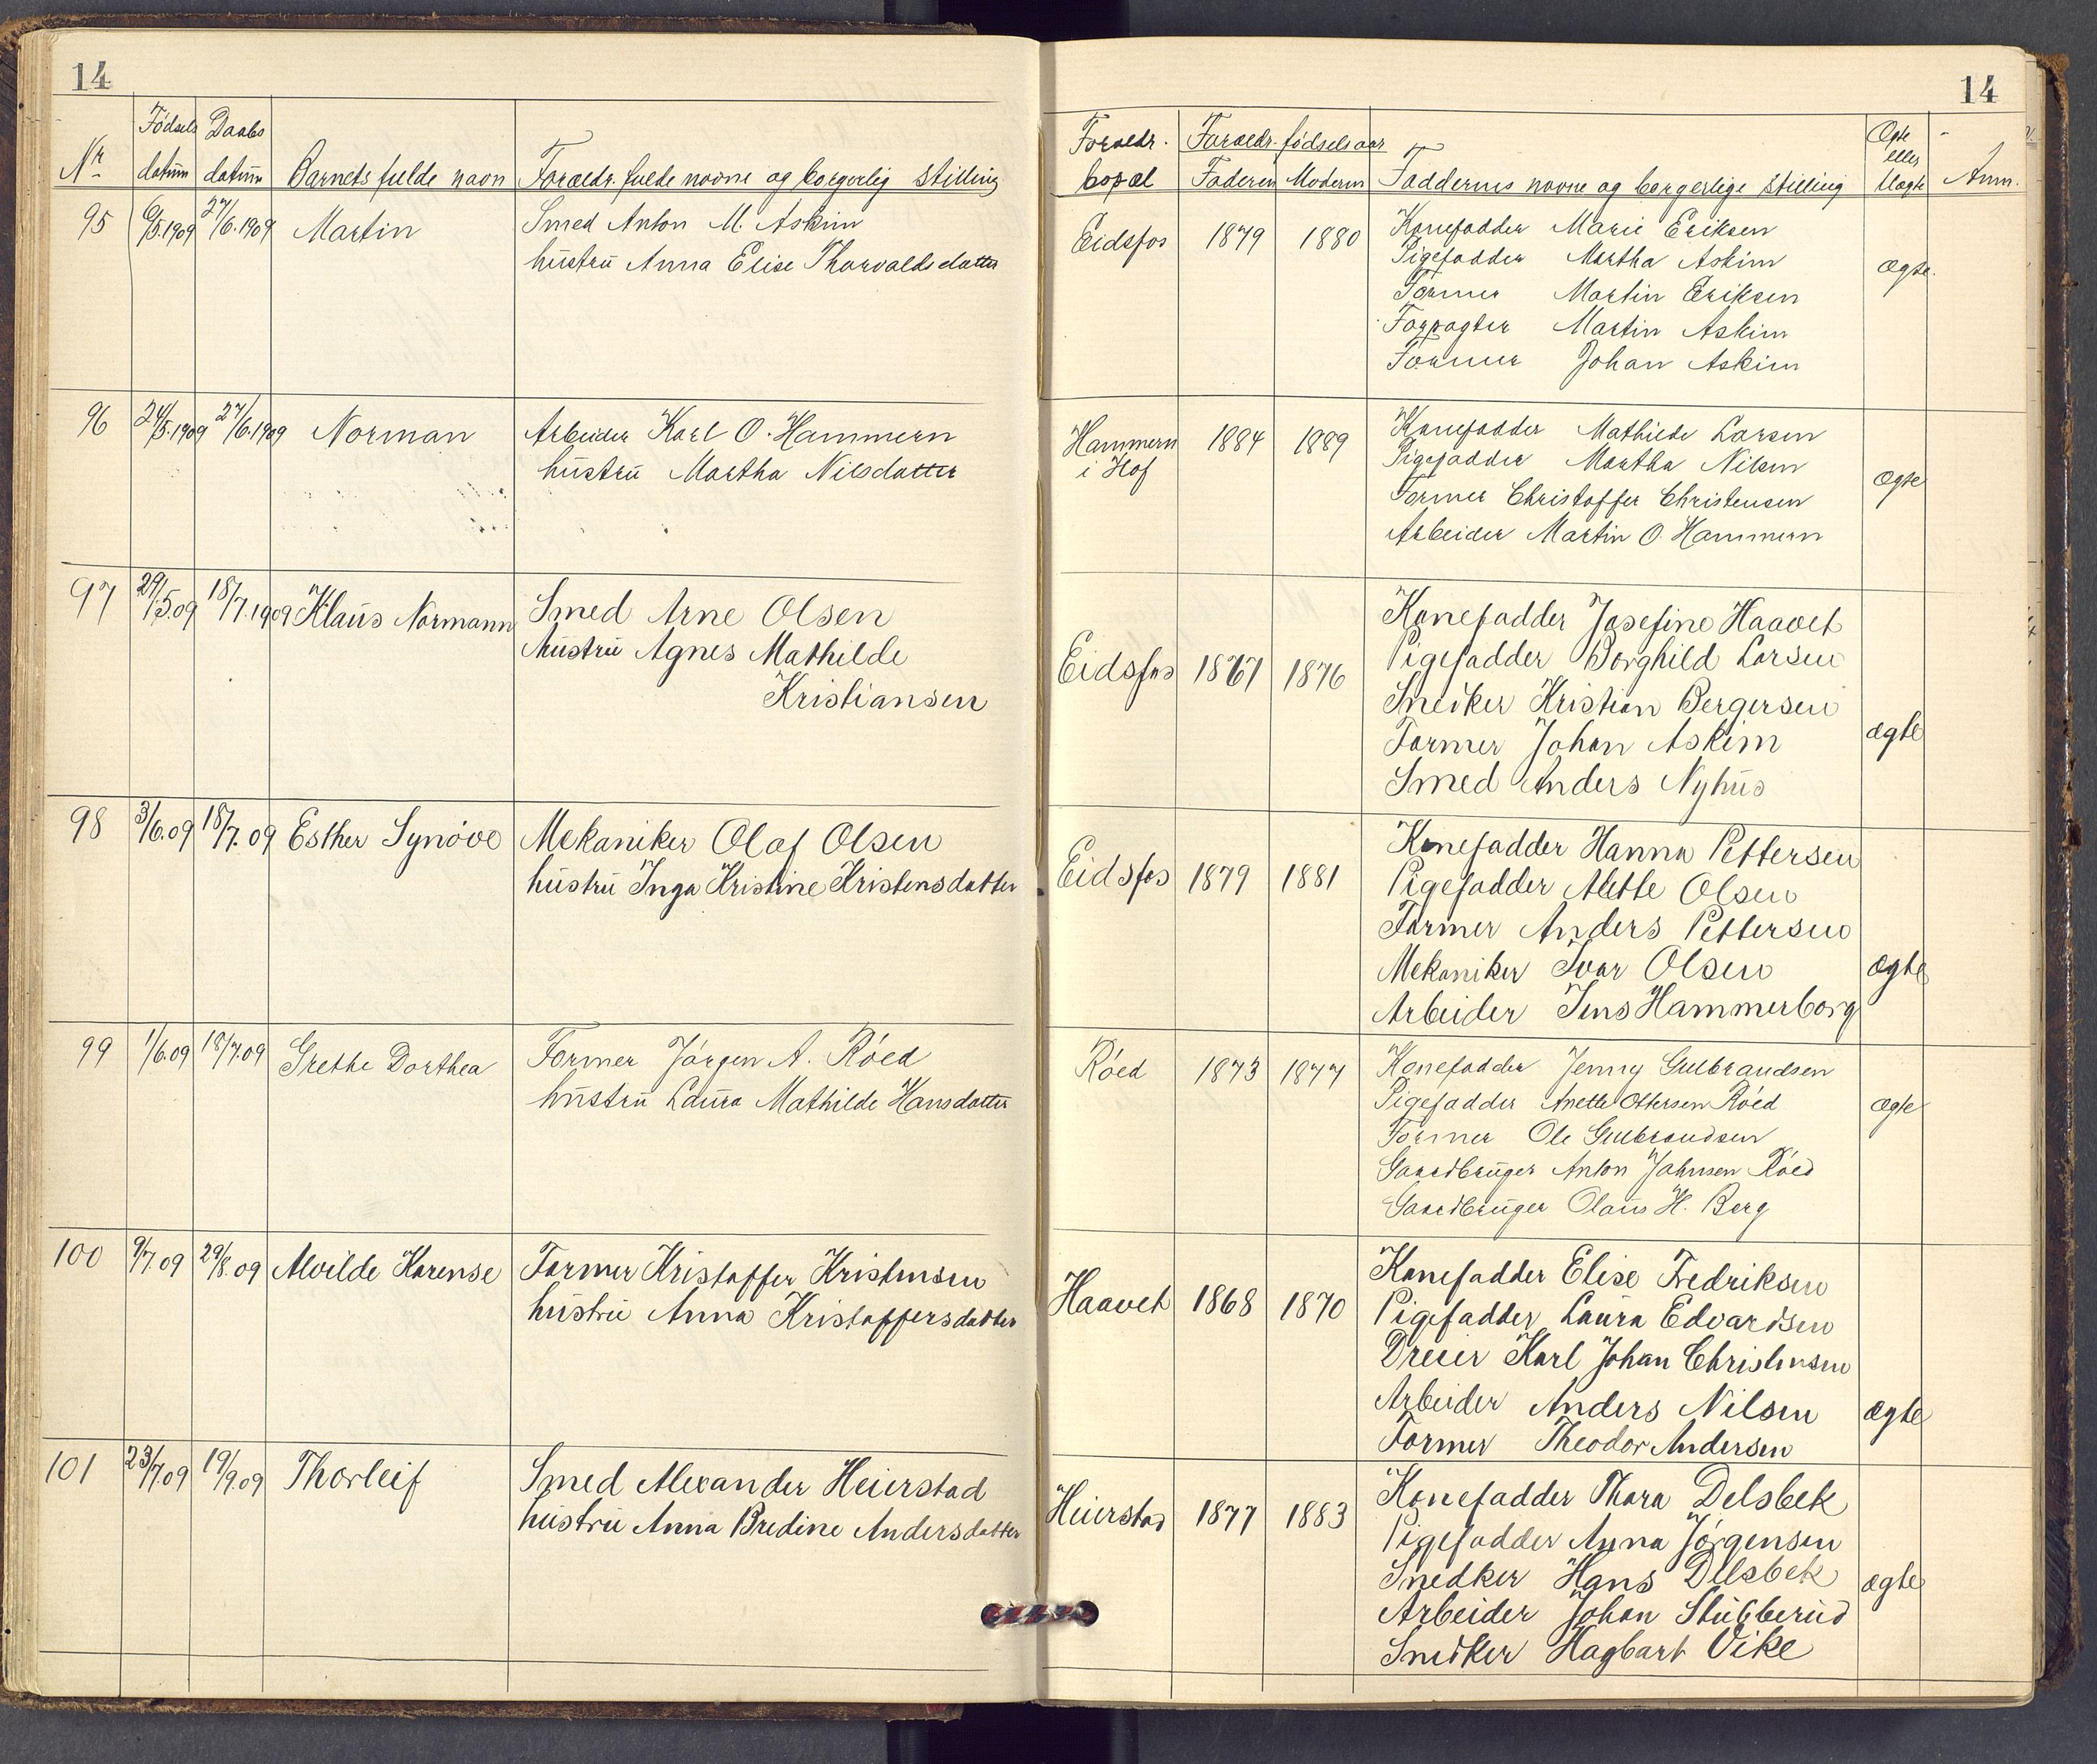 14
Nr Fødsels datum Daabs datum Barnets fulde navn Forældr. fulde navne og borgerlig stilling
95 6/5.1909 27/6.1909 Martin Smed Anton M. Askim
hustru Anna Elise Thorvaldsdatter
96 24/5.1909 27/6.1909 Norman Arbeider Karl O. Hammern
hustru Martha Nilsdatter
97 29/5.09 18/7.1909 Klaus Normann Smed Arne Olsen
hustru Agnes Mathilde
Kristiansen
98 3/6.09 18/7.09 Esther Synøve Mekaniker Olaf Olsen
hustru Inga Kristine Kristensdatter
99 1/6.09 18/7.09 Grethe Dorthea Former Jørgen A. Røed
hustru Laura Mathilde Hansdatter
100 9/7.09 29/8.09 Alvilde Karense Former Kristoffer Kristensen
hustru Anna Kristoffersdatter
101 23/7.09 19/9.09 Thorleif Smed Alexander Heierstad
hustru Anna Bredine Andersdatter
14
Forældr. bopæl Forældr. fødselsaar Faderen Moderen Faddernes navne og borgerlige stilling Ægte eller Uægte Anm.
Eidsfos 1879 1880 Konefadder Marie Eriksen
Pigefadder Martha Askim
Former Martin Eriksen
Forpagter Martin Askim
Former Johan Askim
ægte.
Hammern
i Hof
1884 1889 Konefadder Mathilde Larsen
Pigefadder Martha Nilsen
Former Christoffer Christensen
Arbeider Martin O. Hammern
ægte
Eidsfos 1867 1876 Konefadder Josefine Haavet
Pigefadder Borghild Larsen
Snedker Kristian Bergersen
Former Johan Askim
Smed Anders Nyhus
ægte
Eidsfos 1879 1881 Konefadder Hanna Pettersen
Pigefadder Alette Olsen
Former Anders Pettersen
Mekaniker Ivar Olsen
Arbeider Jens Hammerborg
ægte
Røed 1873 1877 Konefadder Jenny Gulbrandsen
Pigefadder Anette Ottersen Røed
Former Ole Gulbrandsen
Gaardbruger Anton Johnsen Røed
Gaardbruger Olaus H. Berg
ægte
Haavet 1868 1870 Konefadder Elise Fredriksen
Pigefadder Laura Edvardsen
Dreier Karl Johan Christensen
Arbeider Anders Nilsen
Former Theodor Andersen
ægte
Heierstad 1877 1883 Konefadder Thora Delsbek
Pigefadder Anna Jørgensen
Snedker Hans Delsbek
Arbeider Johan Stubberud
Snedker Hagbart Vike
ægte